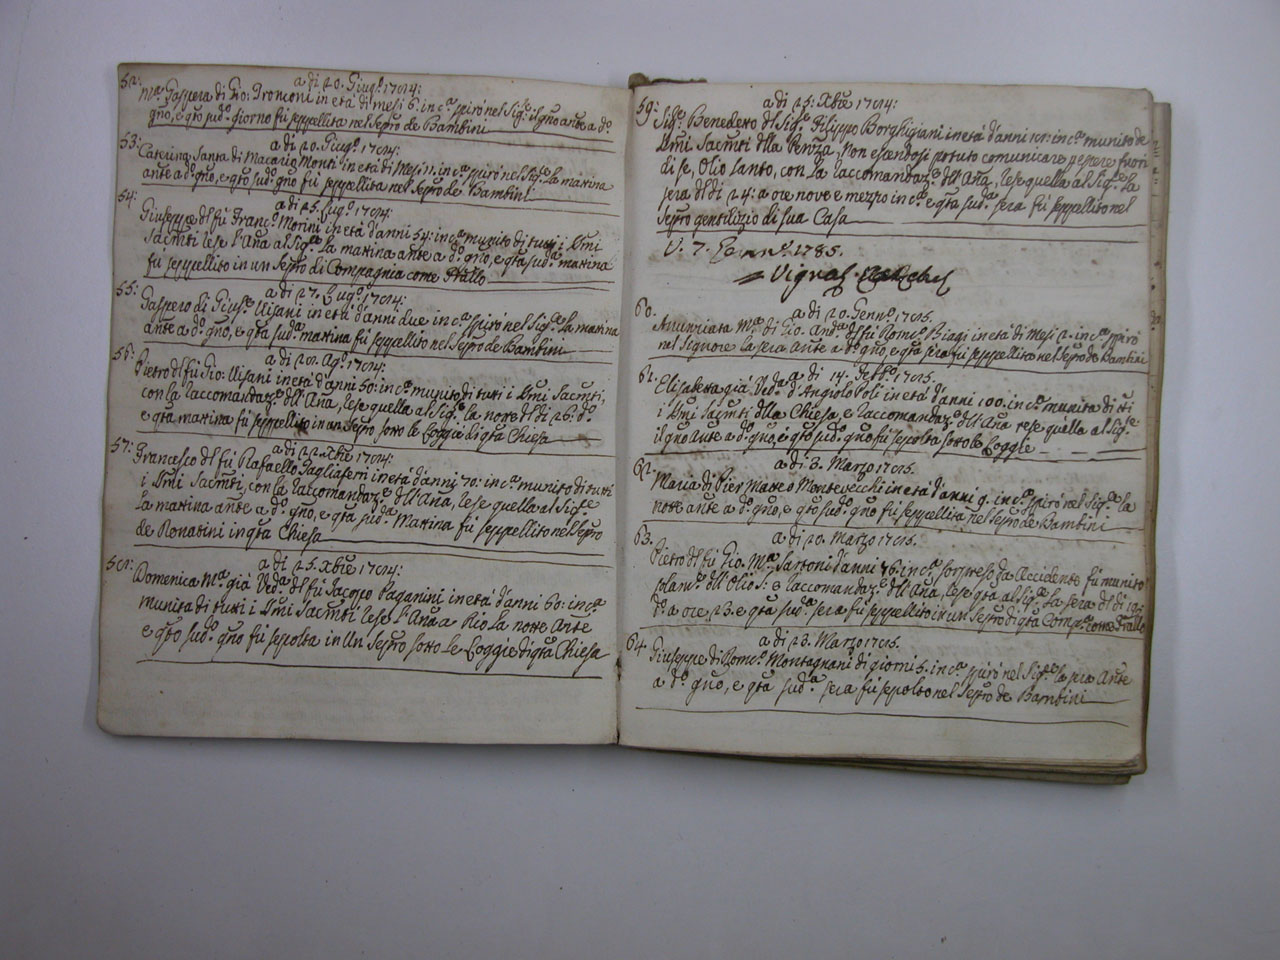 52. a di 20. Giug.º 1784:
M.ª Gaspera di Gio: Tronconi in età di mesi 6: in c.ª spirò nel Sig.ᵉ il gno ante a d.º
gno, e qto sud.º giorno fù seppellita nel Sepro de Bambini
53. a di 20. Giug.º 1784:
Caterina Santa di Macario Monti in età di Mesi 11. in c.ª spirò nel Sig.ᵉ la matina
ante a d.º gno, e qto sud.º gno fù seppellita nel Sepro de Bambini
54. a di 25. Lug.º 1784:
Giuseppe del fù Franc.º Morini in età d'anni 54: in c.ª munito di tutti i Smi
Sacmti rese l'Aña al Sig.ᵉ la matina ante a d.º gno, e qta sud.ª matina
fù seppellito in un Sepro di Compagnia come Frallo
55: a di 27. Lug.º 1784:
Gaspero di Gius.ᵉ Uisani in età d'anni due in c.ª spirò nel Sig.ᵉ la matina
ante a d.º gno, e qta sud.ª matina fù seppellito nel Sepro de Bambini
56. a di 28. Ag.º 1784:
Pietro del fù Gio: Uisani in età d'anni 50: in c.ª munito di tutti i Smi Sacmti,
con la raccomandaz.ᵉ dell'Aña, rese quella al Sig.ᵉ la notte del di 26: d.º
e qta matina fù seppellito in un Sepro sotto le Loggie di qta Chiesa
57: a di 22. Xbre 1784:
Francesco del fù Rafaello Tagliaferi in età d'anni 70: in c.ª munito di tutti
i Smi Sacmti, con la raccomandaz.ᵉ dell'Aña, rese quella al Sig.ᵉ
la matina ante a d.º gno, e qta sud.ª Matina fù seppellito nel Sepro
de Donatini in qta Chiesa
58: a di 25. Xbre 1784:
Domenica M.ª già Ved.ª del fù Jacopo Paganini in età d'anni 60: in c.ª
munita di tutti i Smi Sacmti rese l'Aña a Dio la notte ante
e qto sud.º gno fù sepolta in un Sepro sotto le Loggie di qta Chiesa
59: a di 25: Xbre 1784:
Sig.ᵉ Benedetto del Sig.ᵉ Filippo Borghigiani in età d'anni in c.ª munito de
Smi Sacmti della Peniza, non essendosi potuto comunicare p essere fuori
di se, Olio Santo, con la raccomandaz.ᵉ dell'Aña, rese quella al Sig.ᵉ la
sera del di 24: a ore nove e mezzo in c.ª e qta sud.ª sera fù seppellito nel
Sepro gentilizio di sua Casa
V. 7. Genn.º 1785.
60. a di 20. Genn.º 1785.
Anunziata M.ª di Gio. And.ª del fù Dom.º Biagi in età di Mesi 2. in c.ª spirò
nel Signore la sera ante a d.º gno, e qta sera fù seppellita nel Sepro de Bambini
61. a di 14. Febb.º 1785.
Elisabetta già Ved.ª d'Angiolo Poli in età d'anni 100. in c.ª munita di tti
i Smi Sacmti della Chiesa, e raccomandaz.ᵉ dell'Aña rese quella al Sig.ᵉ
il gno ante a d.º gno, e qto sud.º gno fù sepolta sotto le Loggie
62. a di 3. Marzo 1785.
Maria di Pier Matteo Montevecchi in età d'anni 9. in c.ª spirò nel Sig.ᵉ la
notte ante a d.º gno, e qto sud.º gno fù seppellita nel Sepro de Bambini
63. a di 20. Marzo 1785.
Pietro del fù Gio. M.ª Sartoni d'anni 76. in c.ª sorpreso da Accidente fù munito
solam.ᵉ dell'Olio S: e raccomandaz.ᵉ dell'Aña, rese qta al Sig.ᵉ la sera del di 18:
d.º a ore 23. e qta sud.ª sera fù seppellito in un Sepro di qta Comp.ª come Frallo
64. a di 23. Marzo 1785.
Giuseppe di Dom.º Montagnani di giorni 5. in c.ª spirò nel Sig.ᵉ la sera Ante
a d.º gno, e qta sud.ª sera fù sepolto nel Sepro de Bambini